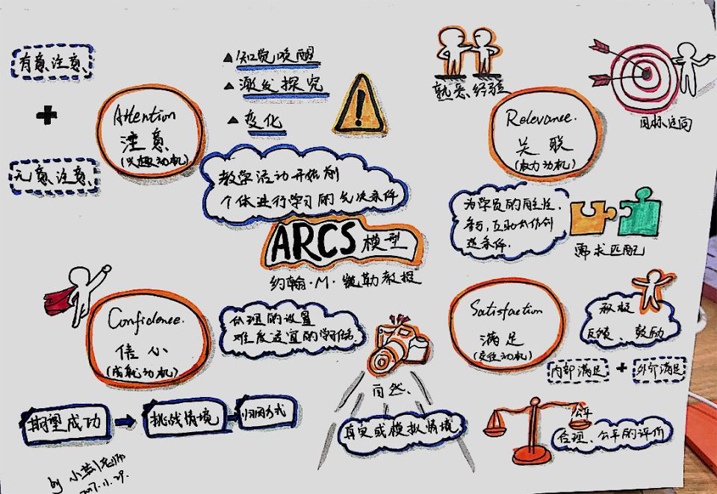 有意注意
+
无意注意
Attention
注意
(兴趣动机)
▲知觉唤醒
▲激发探究
▲变化
!
教学活动开始前
个体进行学习的先决条件
熟悉经验
Relevance.
关联
(权力动机)
目标定向
为学员的自主性、
参与,互助合作创
造条件.
需求匹配
ARCS模型
约翰·M·凯勒教授
Confidence.
信心
(成就动机)
合理的设置
难度适宜的学习任务
期望成功
挑战情境
归因方式
自然.
真实或模拟情境
Satisfaction
满足
(交往动机)
反馈 鼓励
内部满足 + 外部满足
公平
合理、公平的评价
by
2017.11.29.